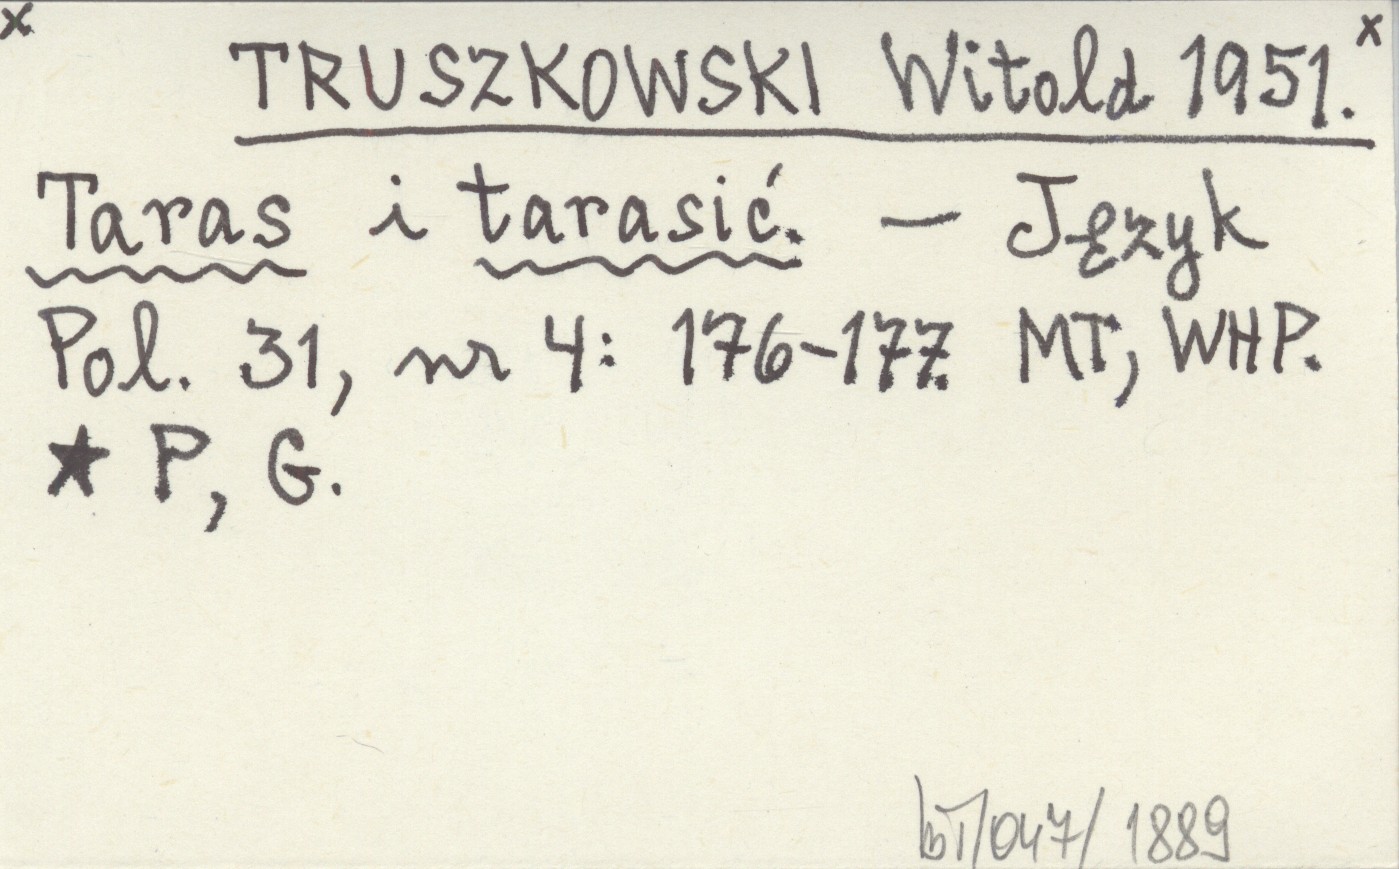 x x
TRUSZKOWSKI Witold 1951.
Taras i tarasić. — Język
Pol. 31, nr 4: 176-177. MT, WHP.
★ P, G.
bT/047/1889